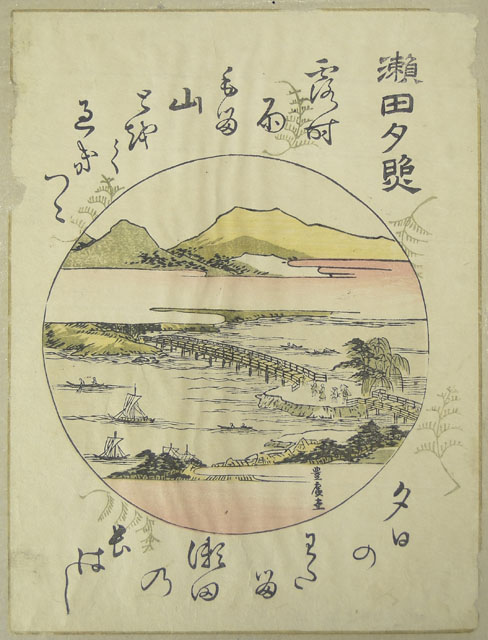 瀬田夕照
露時
雨
もる
山
とをく
過き
つゝ
夕日
の
わた
る
瀬田
乃
長
はし
豊廣画